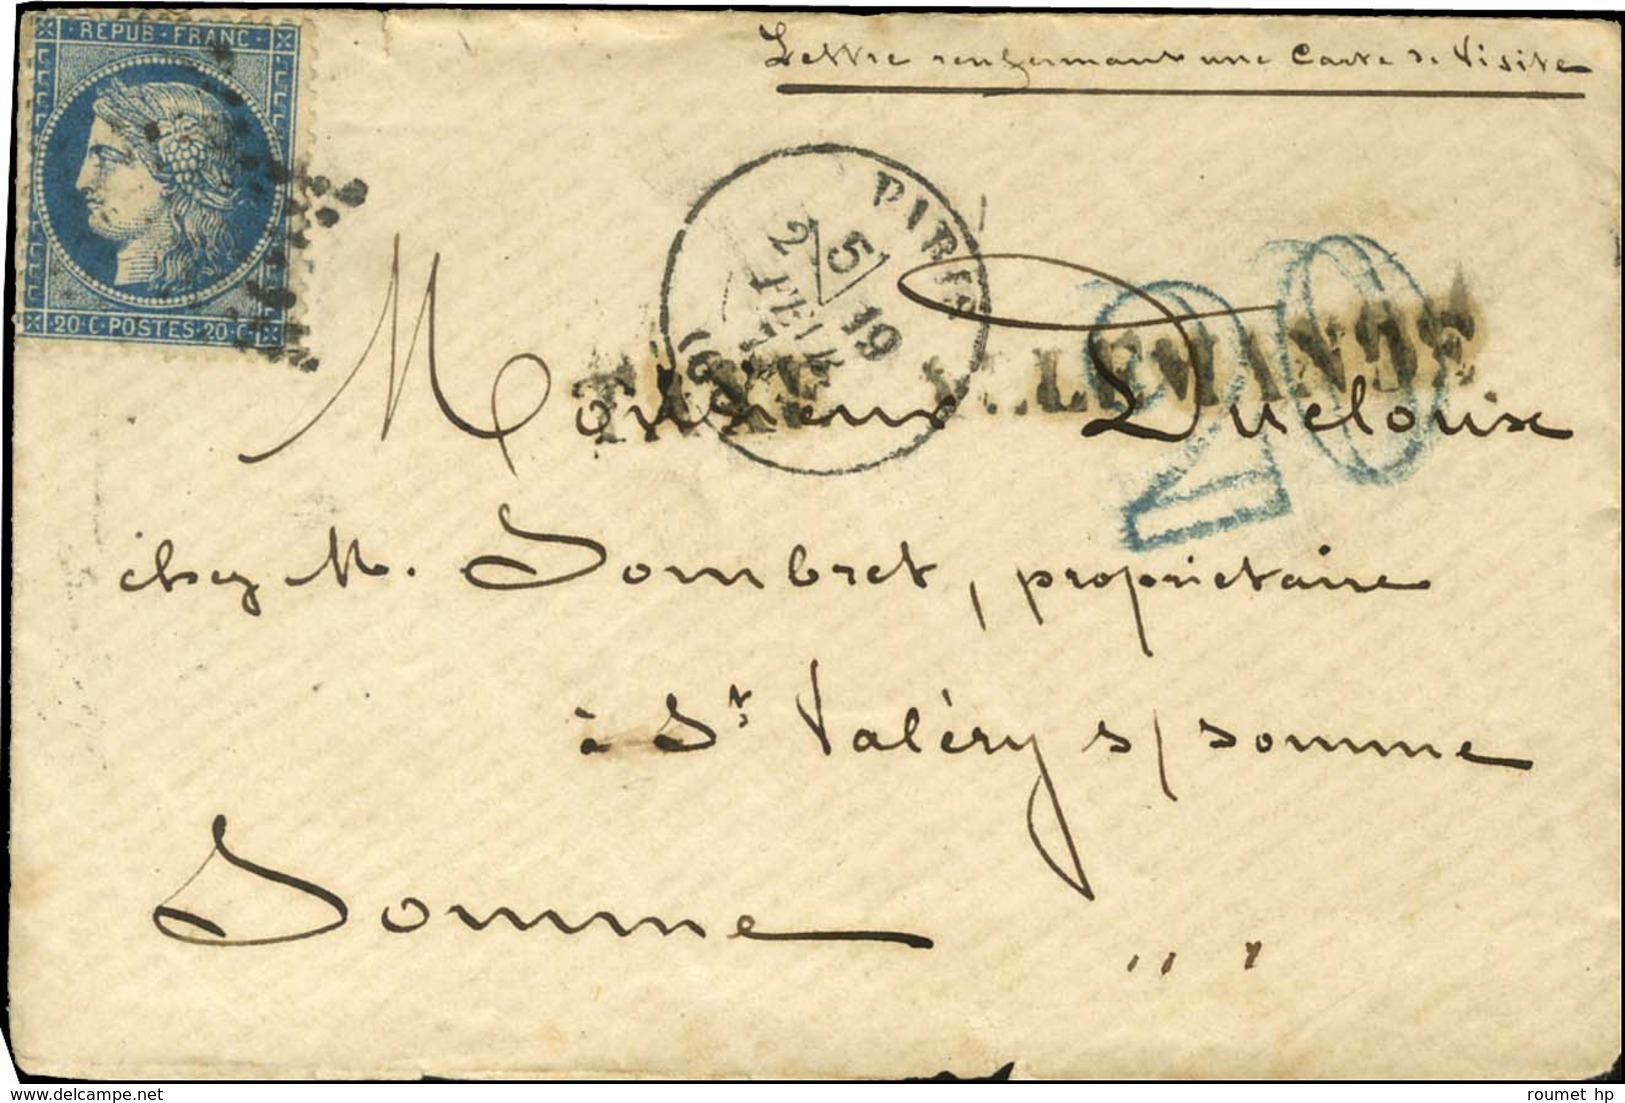 REPUB·FRANC·
20·C·POSTES·20·C
Lettre renfermant une Carte de Visite
PARIS
2 5
19
FEVR.
TAXE ALLEMANDE.
20
Monsieur Ducloux
chez M. Sombret, propriétaire
à St. Valéry s/ somme
Somme
roumet hp